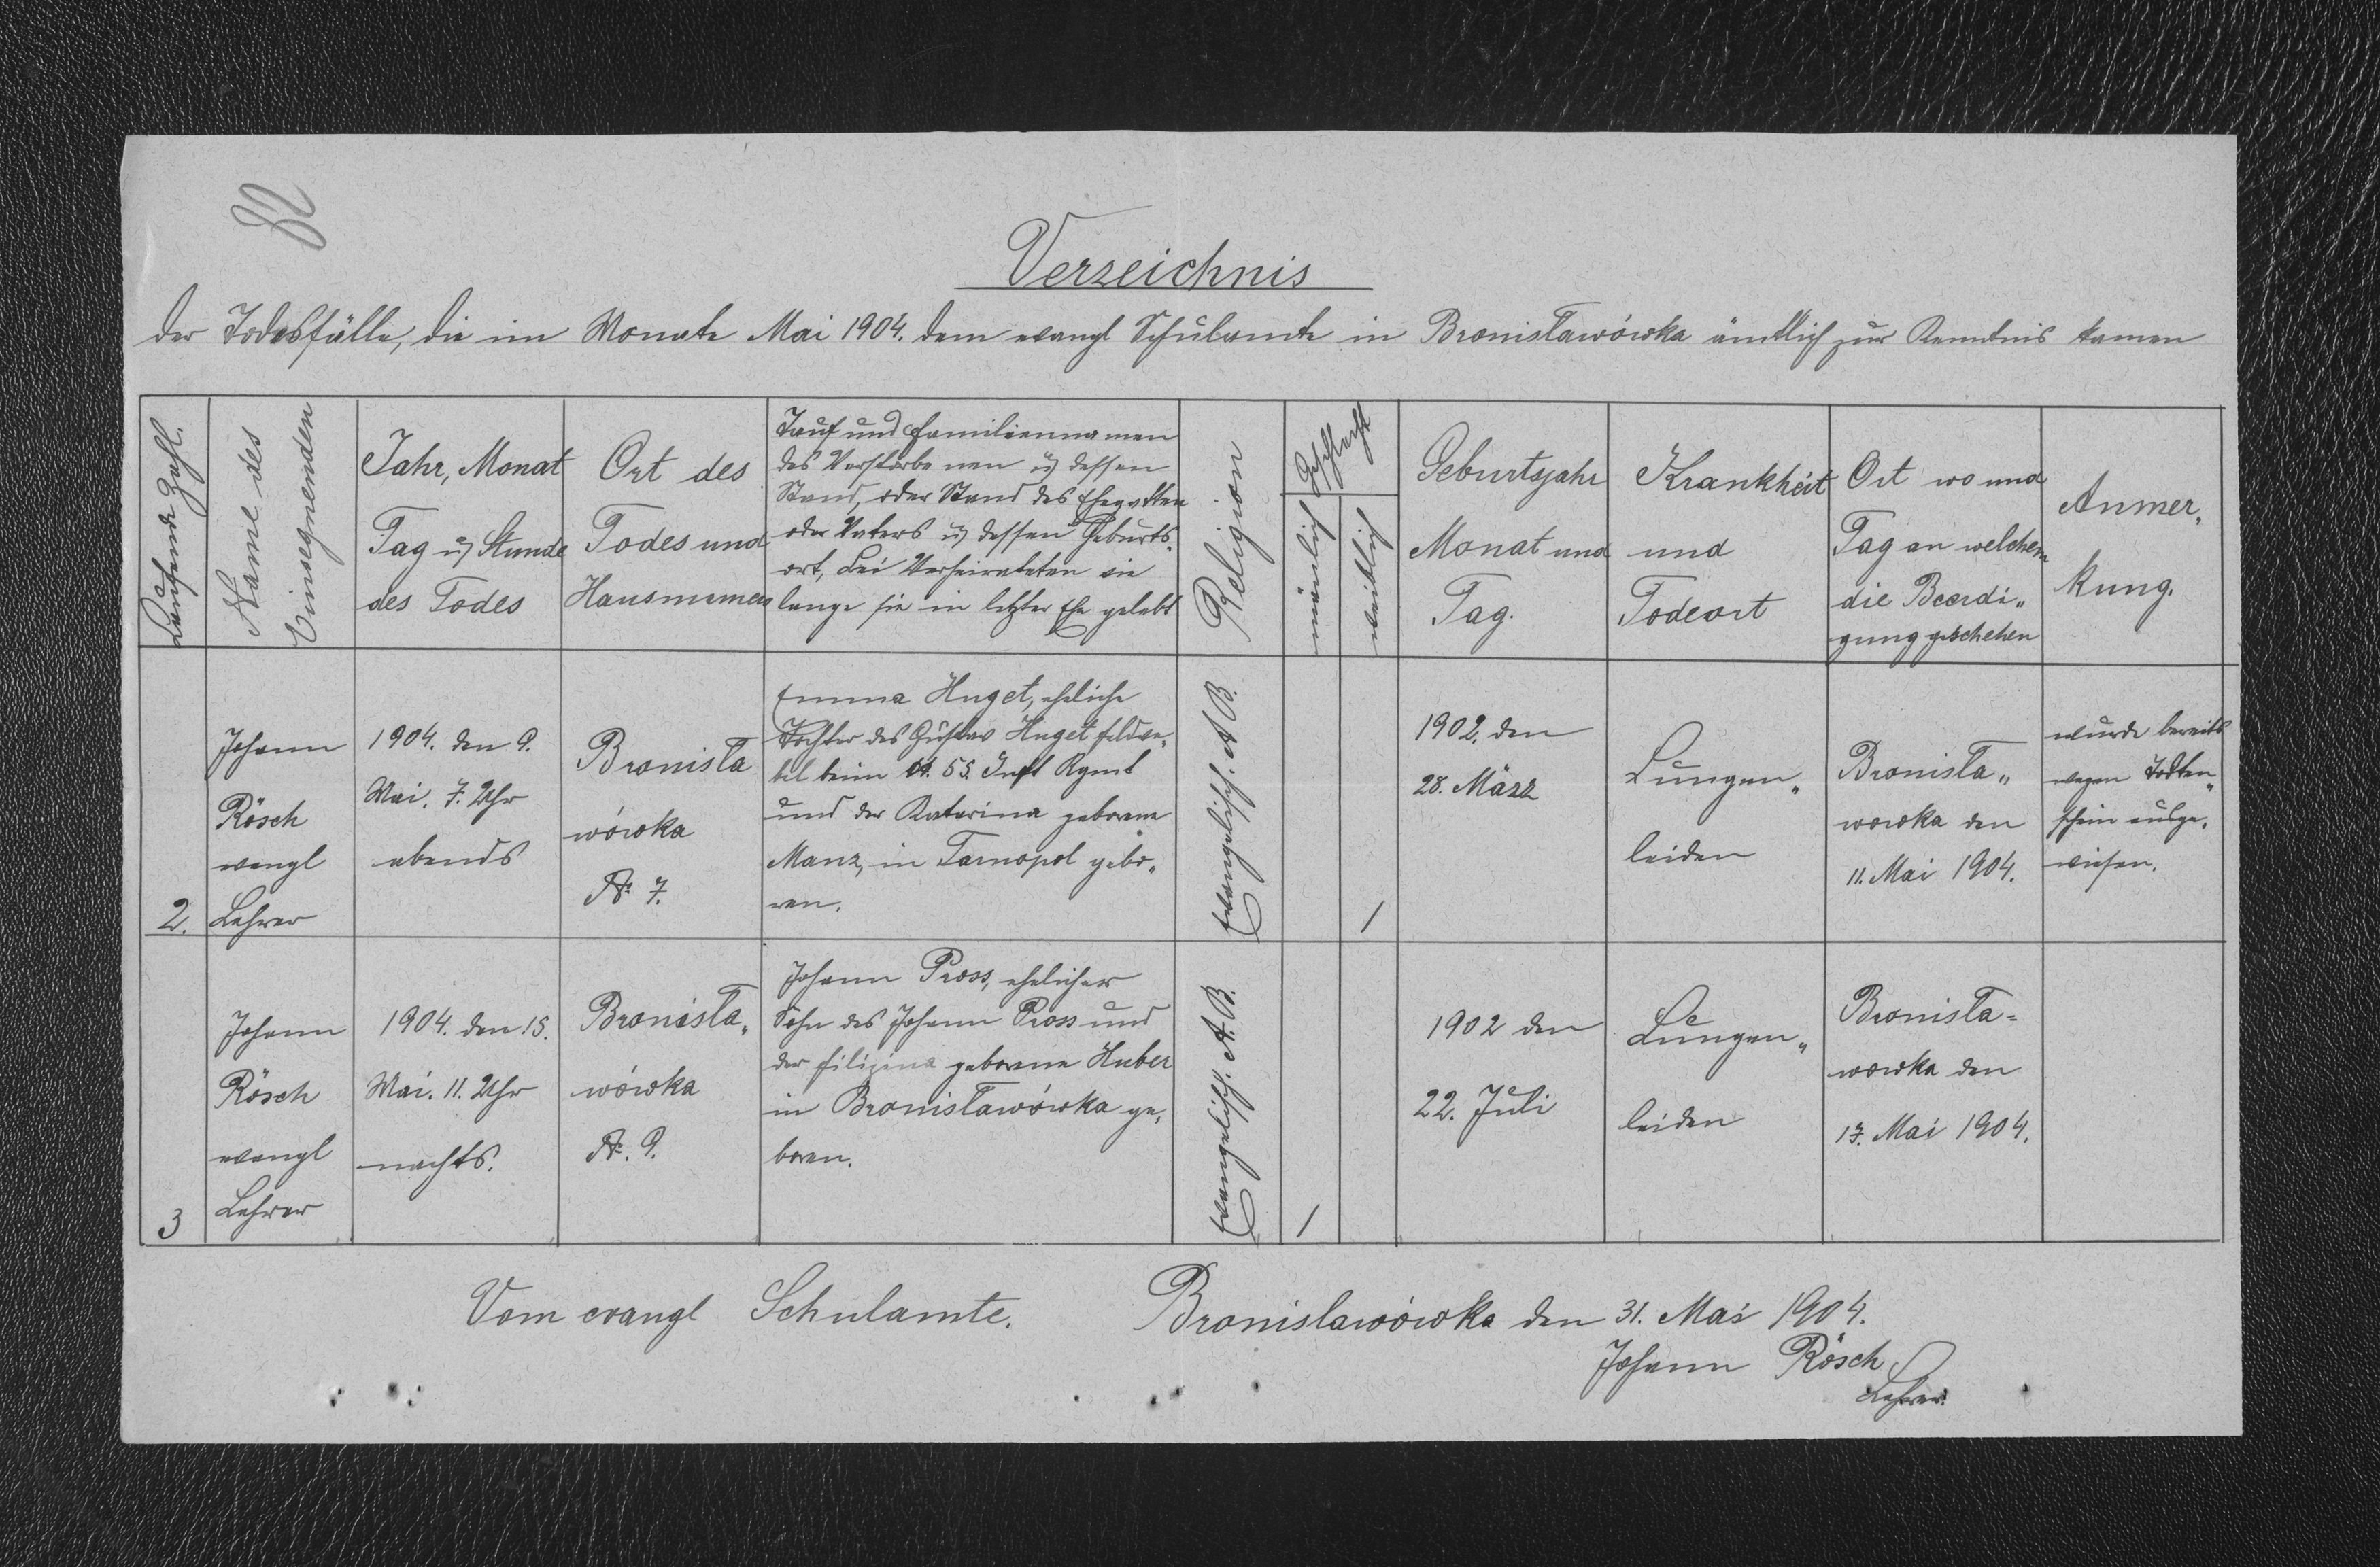 Verzeichnis
der Todesfälle, die im Monate Mai 1904. dem evangl Schulamte in Bronisławówka ämtlich zur Kenntnis kamen
Laufende Zahl.
Name des
Einsegnenden
Jahr, Monat
Tag u Stunde
des Todes
Ort des
Todes und
Hausnumero
Tauf und Familiennamen
des Verstorbenen u dessen
Stand, oder Stand des Ehegatten
oder Vaters u dessen Geburts„
ort, bei Verheirateten wie
lange sie in letzter Ehe gelebt
Religion
Geschlecht
mänlich
weiblich
Geburtsjahr
Monat und
Tag.
Krankheit
und
Todeort
Ort wo und
Tag an welchem
die Beerdi„
gung geschehen
Anmer„
kung.
2.
Johann
Rösch
evangl
Lehrer
1904. den 9.
Mai. 7. Uhr
abends
Bronisła
wówka
№ 7.
Emma Huget, eheliche
Tochter des Gustav Huget Feldwe„
bel beim 55. Inft Rgmt
und der Katarina geborene
Manz, in Tarnopol gebo„
ren.
Evangelisch. A B.
1
1902. den
28. März
Lungen„
leiden
Bronisła„
wowka den
11. Mai 1904.
wurde bereits
wegen Todten„
schein ausge„
wiesen.
3
Johann
Rösch
evangl
Lehrer
1904. den 15.
Mai. 11. Uhr
nachts.
Bronisła„
wówka
№. 9.
Johann Pross, ehelicher
Sohn des Johann Pross und
der Filipina geborene Huber
in Bronisławówka ge„
boren.
Evangelisch. A. B.
1
1902 den
22. Juli
Lungen„
leiden
Bronisła=
wowka den
17. Mai 1904.
Vom evangl Schulamte.
Bronislawówka den 31. Mai 1904.
Johann Rösch
Lehrer.